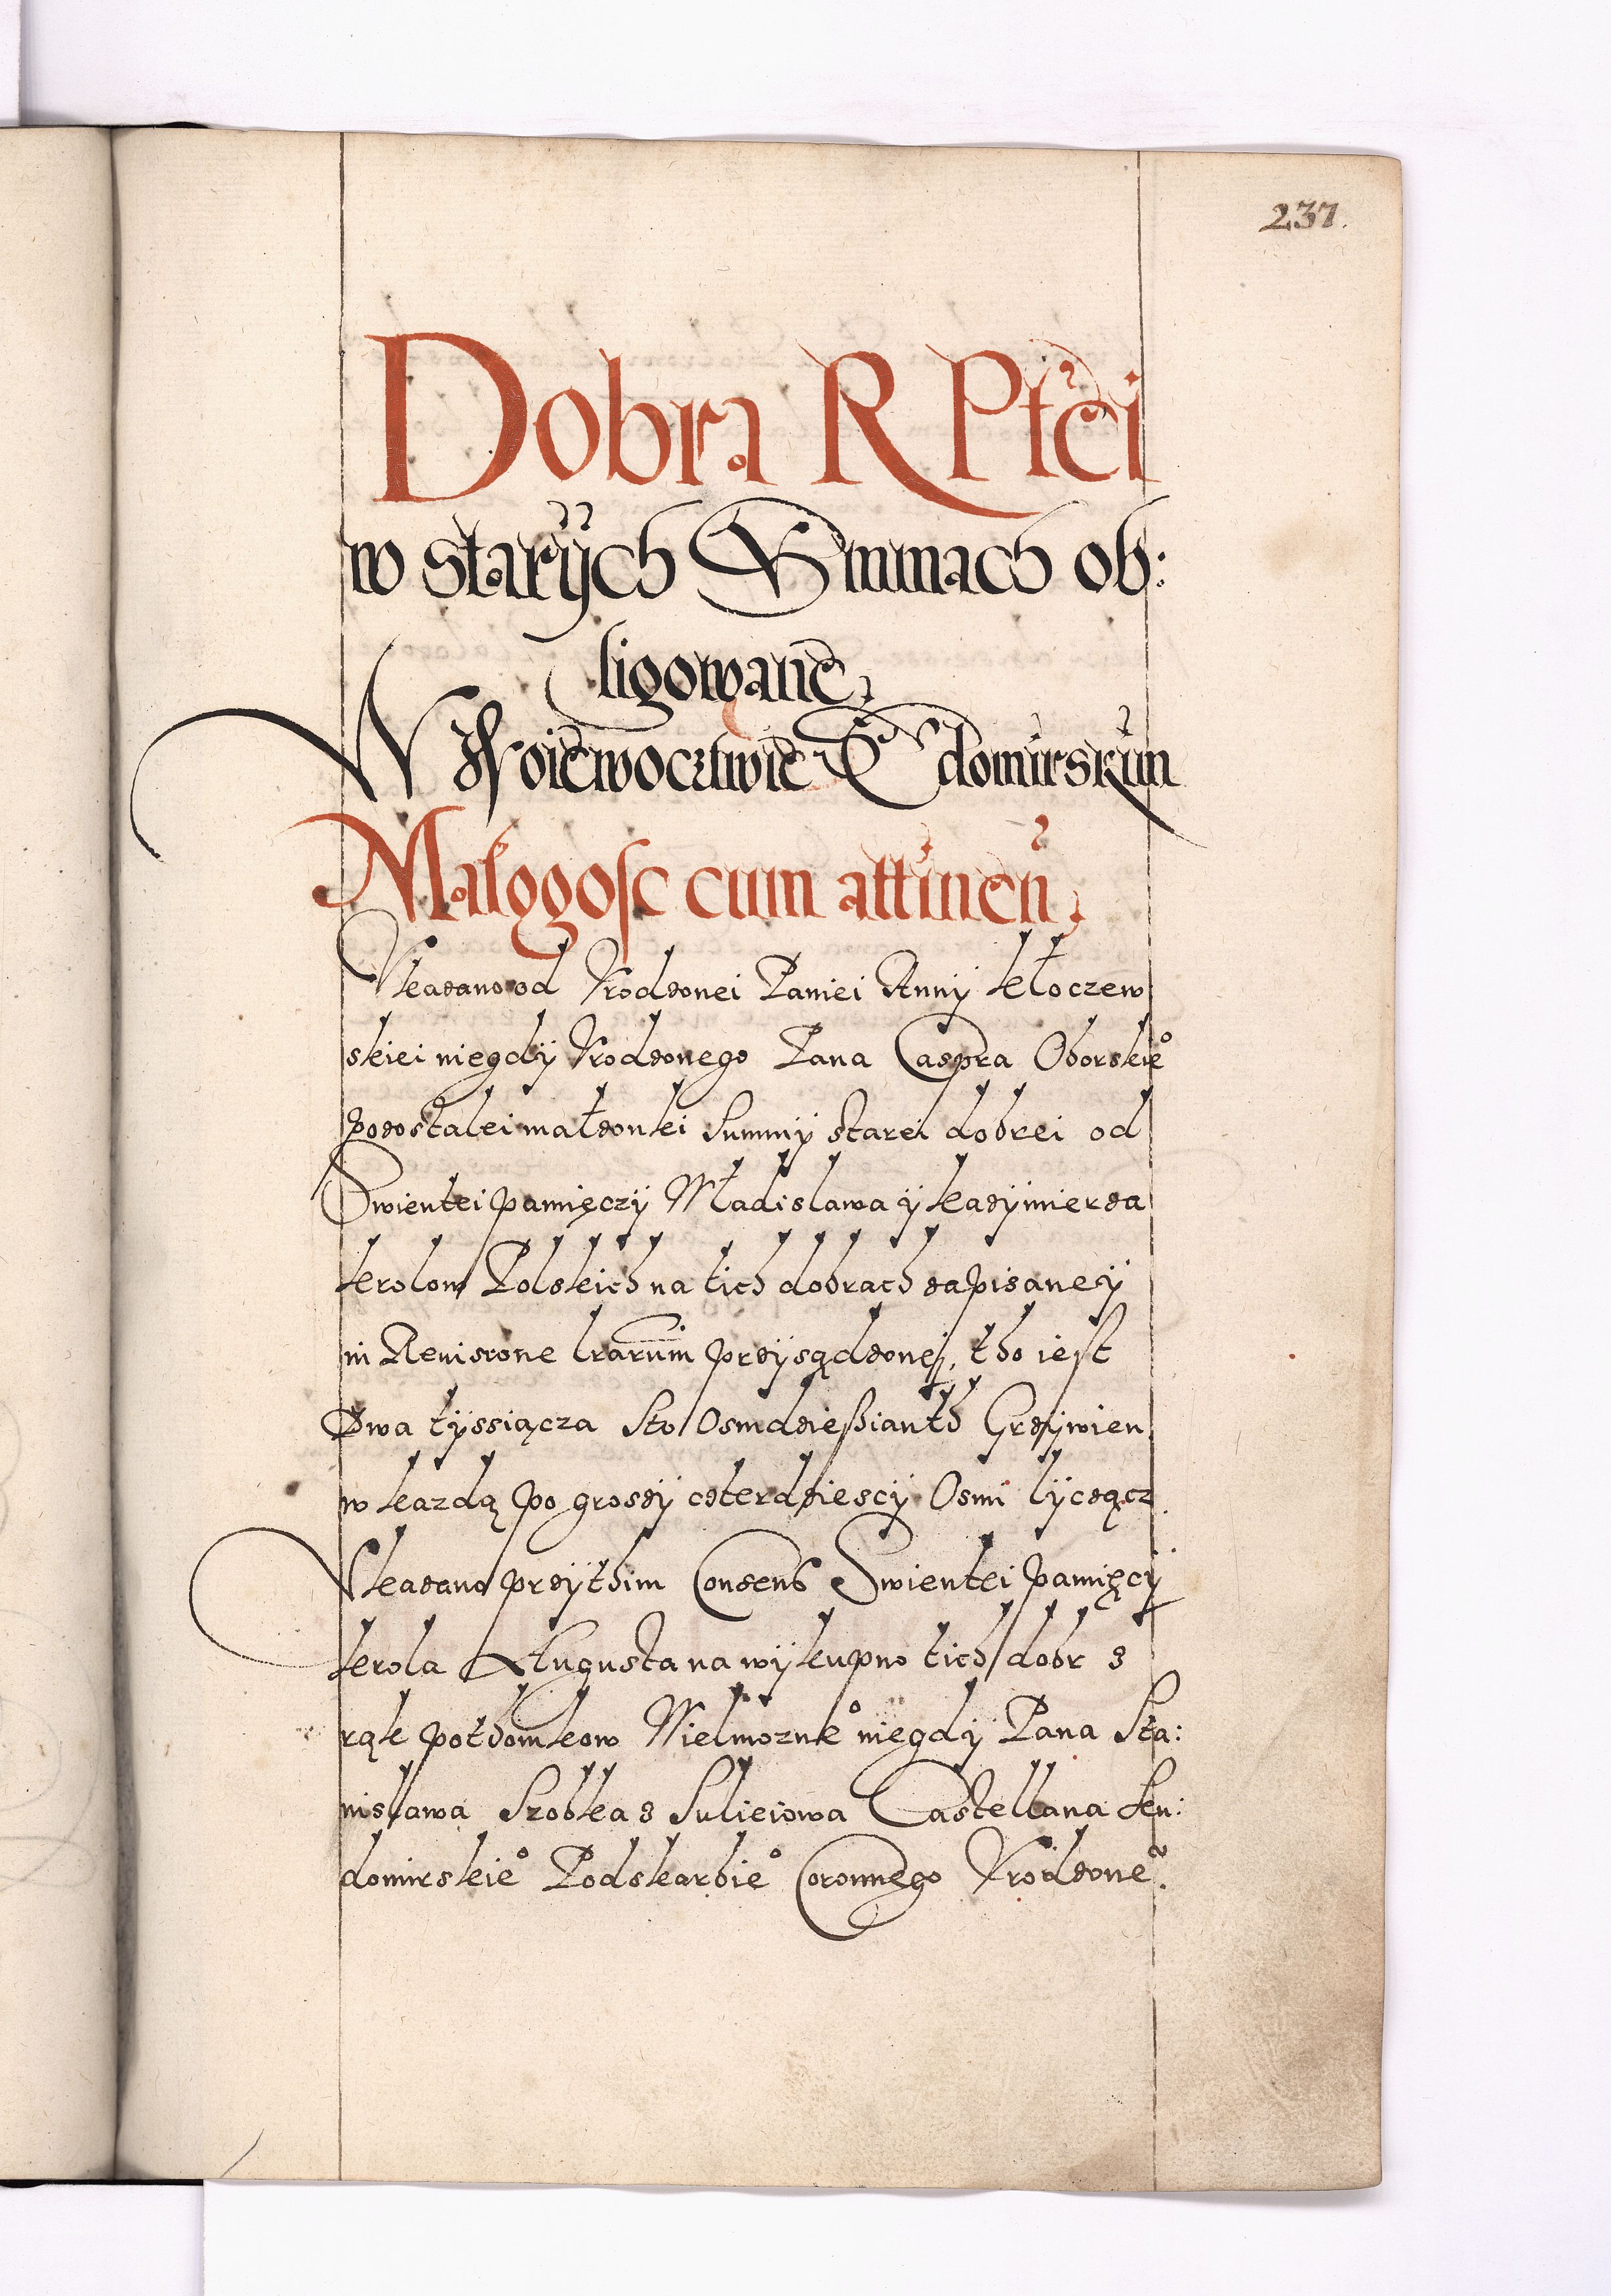 237.
Dobra R Ptci
w starÿch Summach ob:
ligowane,
W Woiewocztwie Sędomirskim
Małogosc cum attinen,
Vkazano od Vrodzonei Paniei Annÿ kłoczew
skiei niegdÿ Vrodzonego Pana Caspra Oborskie°
pozostałei małzonki Summÿ starei dobrei od
Swientei pamięczÿ Władislawa ÿ kazÿmierza
krolow Polskich na tich dobrach zapisaneÿ
in Revisione lrarum przÿsądzonej, tho iest
Dwa tÿssiącza Sto Osmdzießianth Grzÿwien
w kazdą po groszÿ czterdziescÿ Osmi lÿczącz
Vkazano przÿthim Consens Swientei pamięcÿ
krola Augusta na wÿkupno tich dobr z
rąk pothomkow Wielmozne° niegdÿ Pana Sta:
nisława Srobka z Sulieiowa Castellana sen:
domirskie° Podskarbie° Coronnego Vrodzone°.